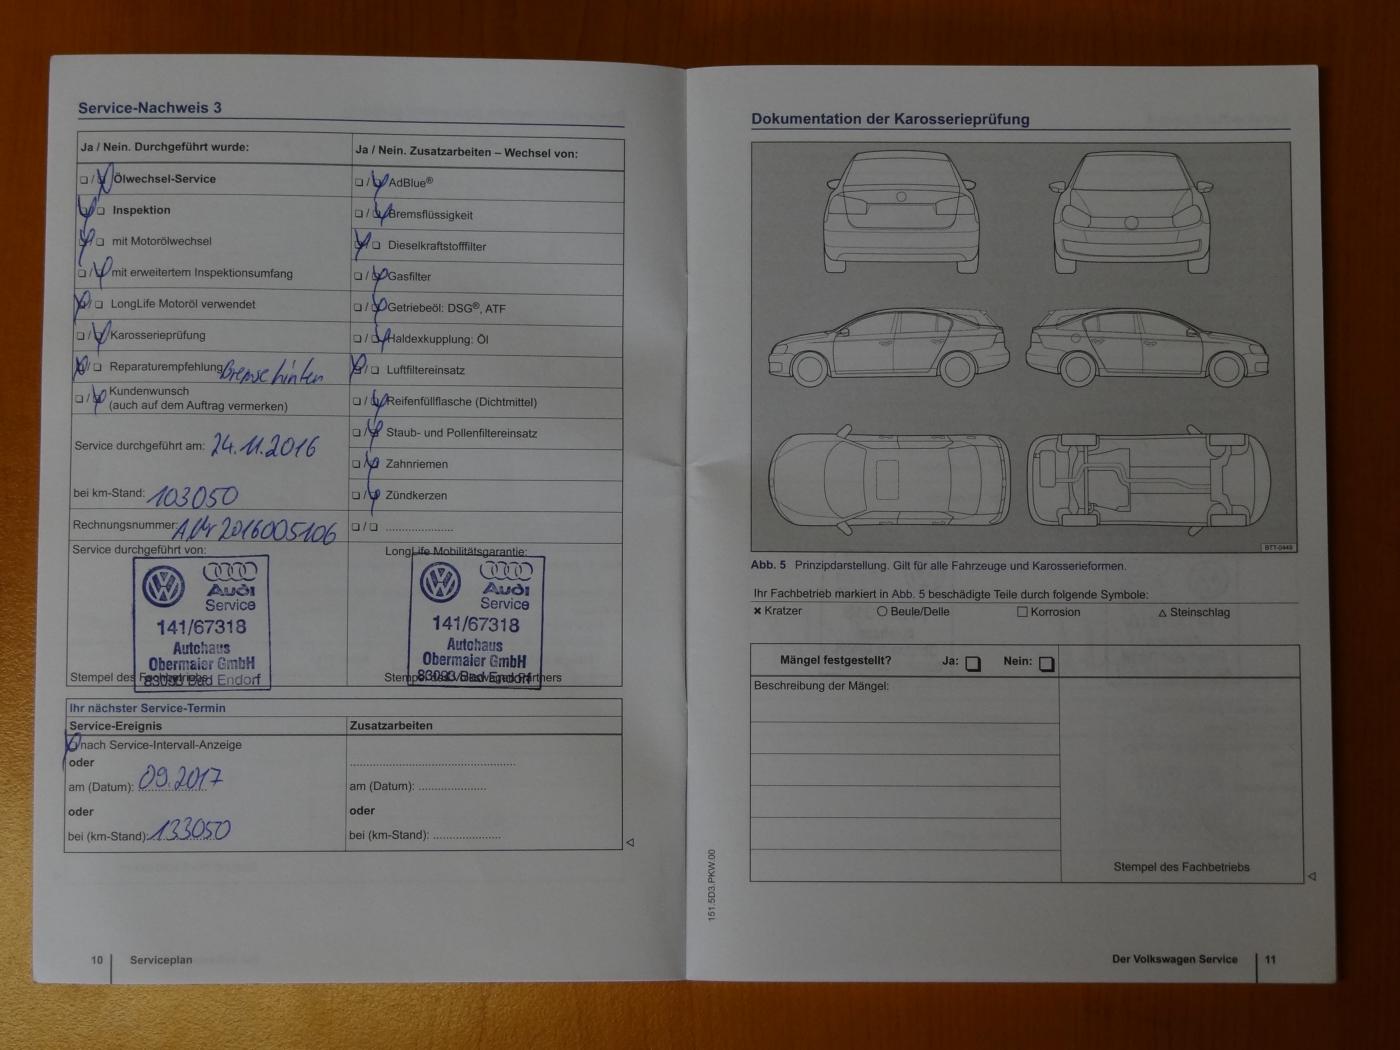 Service-Nachweis 3
Ja / Nein. Durchgeführt wurde:
❏ / ❏ Ölwechsel-Service
❏ / ❏ Inspektion
❏ / ❏ mit Motorölwechsel
❏ / ❏ mit erweitertem Inspektionsumfang
❏ / ❏ LongLife Motoröl verwendet
❏ / ❏ Karosserieprüfung
❏ / ❏ Reparaturempfehlung Bremse hinten
❏ / ❏ Kundenwunsch
(auch auf dem Auftrag vermerken)
Service durchgeführt am: 24.11.2016
bei km-Stand: 103050
Rechnungsnummer: 2016005106
Service durchgeführt von:
Audi
Service
141/67318
Autohaus
Obermaier GmbH
83093 Bad Endorf
Stempel des Fachbetriebs
Ja / Nein. Zusatzarbeiten – Wechsel von:
❏ / ❏ AdBlue®
❏ / ❏ Bremsflüssigkeit
❏ / ❏ Dieselkraftstofffilter
❏ / ❏ Gasfilter
❏ / ❏ Getriebeöl: DSG®, ATF
❏ / ❏ Haldexkupplung: Öl
❏ / ❏ Luftfiltereinsatz
❏ / ❏ Reifenfüllflasche (Dichtmittel)
❏ / ❏ Staub- und Pollenfiltereinsatz
❏ / ❏ Zahnriemen
❏ / ❏ Zündkerzen
❏ / ❏ .....................
LongLife Mobilitätsgarantie:
Audi
Service
141/67318
Autohaus
Obermaier GmbH
83093 Bad Endorf
Stempel des Volkswagen Partners
Ihr nächster Service-Termin
Service-Ereignis
❏ nach Service-Intervall-Anzeige
oder
am (Datum): 09.2017
oder
bei (km-Stand): 133050
Zusatzarbeiten
....................................................
am (Datum): .....................
oder
bei (km-Stand): .....................
10 Serviceplan
Dokumentation der Karosserieprüfung
BTT-0449
Abb. 5 Prinzipdarstellung. Gilt für alle Fahrzeuge und Karosserieformen.
Ihr Fachbetrieb markiert in Abb. 5 beschädigte Teile durch folgende Symbole:
✖ Kratzer ○ Beule/Delle □ Korrosion △ Steinschlag
Mängel festgestellt? Ja: ❏ Nein: ❏
Beschreibung der Mängel:
Stempel des Fachbetriebs
151.5D3.PKW.00
Der Volkswagen Service 11